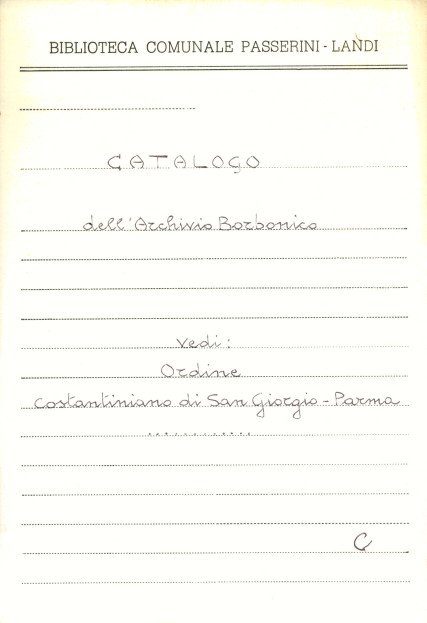 BIBLIOTECA COMUNALE PASSERINI-LANDI
CATALOGO
dell'Archivio Borbonico
vedi:
Ordine
Costantiniano di San Giorgio - Parma
............
C